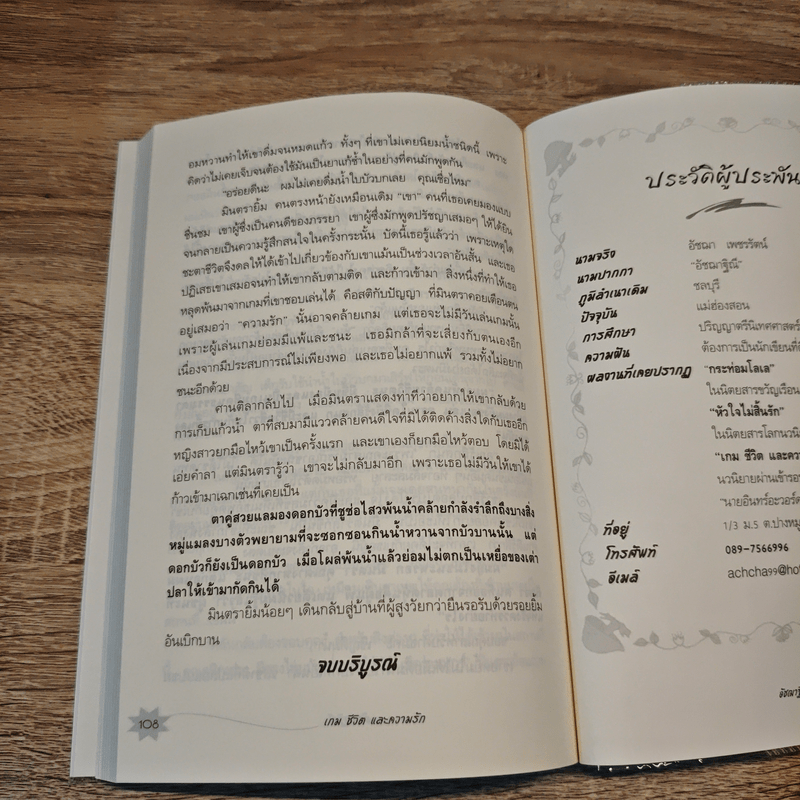 อมหวานทำให้เขาดื่มจนหมดแก้ว ทั้งๆ ที่เขาไม่เคยนิยมน้ำชนิดนี้ เพราะ
คิดว่าไม่เคยเจ็บจนต้องใช้มันเป็นยาแก้ช้ำในอย่างที่คนมักพูดกัน
"อร่อยดีนะ ผมไม่เคยดื่มน้ำใบบัวบกเลย คุณเชื่อไหม"
มินตรายิ้ม คนตรงหน้ายังเหมือนเดิม "เขา" คนที่เธอเคยมองแบบ
ชื่นชม เขาผู้ซึ่งเป็นคนดีของภรรยา เขาผู้ซึ่งมักพูดปรัชญาเสมอๆ ให้ได้ยิน
จนกลายเป็นความรู้สึกสนใจในครั้งกระนั้น บัดนี้เธอรู้แล้วว่า เพราะเหตุใด
ชะตาชีวิตจึงดลให้ได้เข้าไปเกี่ยวข้องกับเขาแม้นเป็นช่วงเวลาอันสั้น และเธอ
ปฏิเสธเขาเสมอจนทำให้เขากลับตามติด และก้าวเข้ามา สิ่งหนึ่งที่ทำให้เธอ
หลุดพ้นมาจากเกมที่เขาชอบเล่นได้ คือสติกับปัญญา ที่มินตราคอยเตือนตน
อยู่เสมอว่า "ความรัก" นั้นอาจคล้ายเกม แต่เธอจะไม่มีวันเล่นเกมนั้น
เพราะผู้เล่นเกมย่อมมีแพ้และชนะ เธอมิกล้าที่จะเสี่ยงกับตนเองอีก
เนื่องจากมีประสบการณ์ไม่เพียงพอ และเธอไม่อยากแพ้ รวมทั้งไม่อยาก
ชนะอีกด้วย
ศานติลากลับไป เมื่อมินตราแสดงท่าทีว่าอยากให้เขากลับด้วย
การเก็บแก้วน้ำ ตาที่สบมามีแววคล้ายคนดีใจที่มิได้ติดค้างสิ่งใดกับเธออีก
หญิงสาวยกมือไหว้เขาเป็นครั้งแรก และเขาเองก็ยกมือไหว้ตอบ โดยมิได้
เอ่ยคำลา แต่มินตรารู้ว่า เขาจะไม่กลับมาอีก เพราะเธอไม่มีวันให้เขาได้
ก้าวเข้ามาเฉกเช่นที่เคยเป็น
ตาคู่สวยแลมองดอกบัวที่ชูช่อไสวพ้นน้ำคล้ายกำลังรำลึกถึงบางสิ่ง
หมู่แมลงบางตัวพยายามที่จะซอกซอนกินน้ำหวานจากบัวบานนั้น แต่
ดอกบัวก็ยังเป็นดอกบัว เมื่อโผล่พ้นน้ำแล้วย่อมไม่ตกเป็นเหยื่อของเต่า
ปลาให้เข้ามากัดกินได้
มินตรายิ้มน้อยๆ เดินกลับสู่บ้านที่ผู้สูงวัยกว่ายืนรอรับด้วยรอยยิ้ม
อันเบิกบาน
จบบริบูรณ์
108
เกม ชีวิต และความรัก
ประวัติผู้ประพัน
นามจริง อัชฌา เพชรรัตน์
นามปากกา "อัชฌาฐิณี"
ภูมิลำเนาเดิม ชลบุรี
ปัจจุบัน แม่ฮ่องสอน
การศึกษา ปริญญาตรีนิเทศศาสตร์
ความฝัน ต้องการเป็นนักเขียนที่
ผลงานที่เคยปรากฏ "กระท่อมโลเล"
ในนิตยสารขวัญเรือน
"หัวใจไม่สิ้นรัก"
ในนิตยสารโลกนวนิ
"เกม ชีวิต และคว
นวนิยายผ่านเข้ารอ
"นายอินทร์อะวอร์ด
ที่อยู่ 1/3 ม.5 ต.ปางหมู
โทรศัพท์ 089-7566996
อีเมล์ achcha99@hot
อัชฌาฐิ